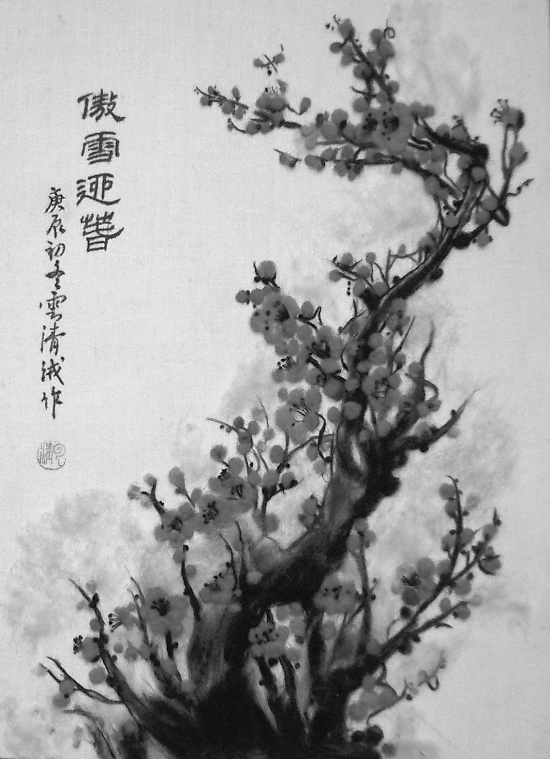 傲雪迎春
庚辰初冬雲清
作